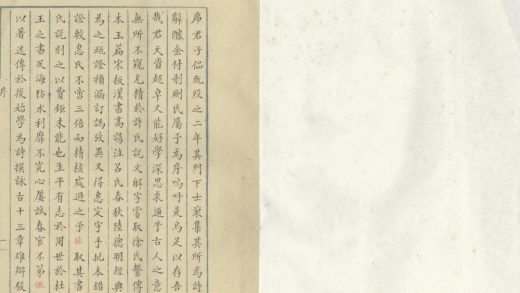 席君子侃既歿之二年其門下士裒集其所為詩
辭醵金付剞劂氏屬予為序嗚呼是烏足以存吾
哉君天資超卓又能好學深思求通乎古人之意
無所不窺尤精於許氏說文解字嘗取徐氏繫傳
本玉篇宋板漢書高誘注呂氏春秋陸德明經典
為之疏證補漏訂譌攷異又得惠定宇手批本錯
證較惠氏不啻三倍而精核處過之予 取其書
氏說刻之以費鉅未能也生平有志於用世於杜
王之書及海防水利靡不究心屢試春官不第
以著述傳於後始學為詩撰詠古十三章雄辯駿
序
一